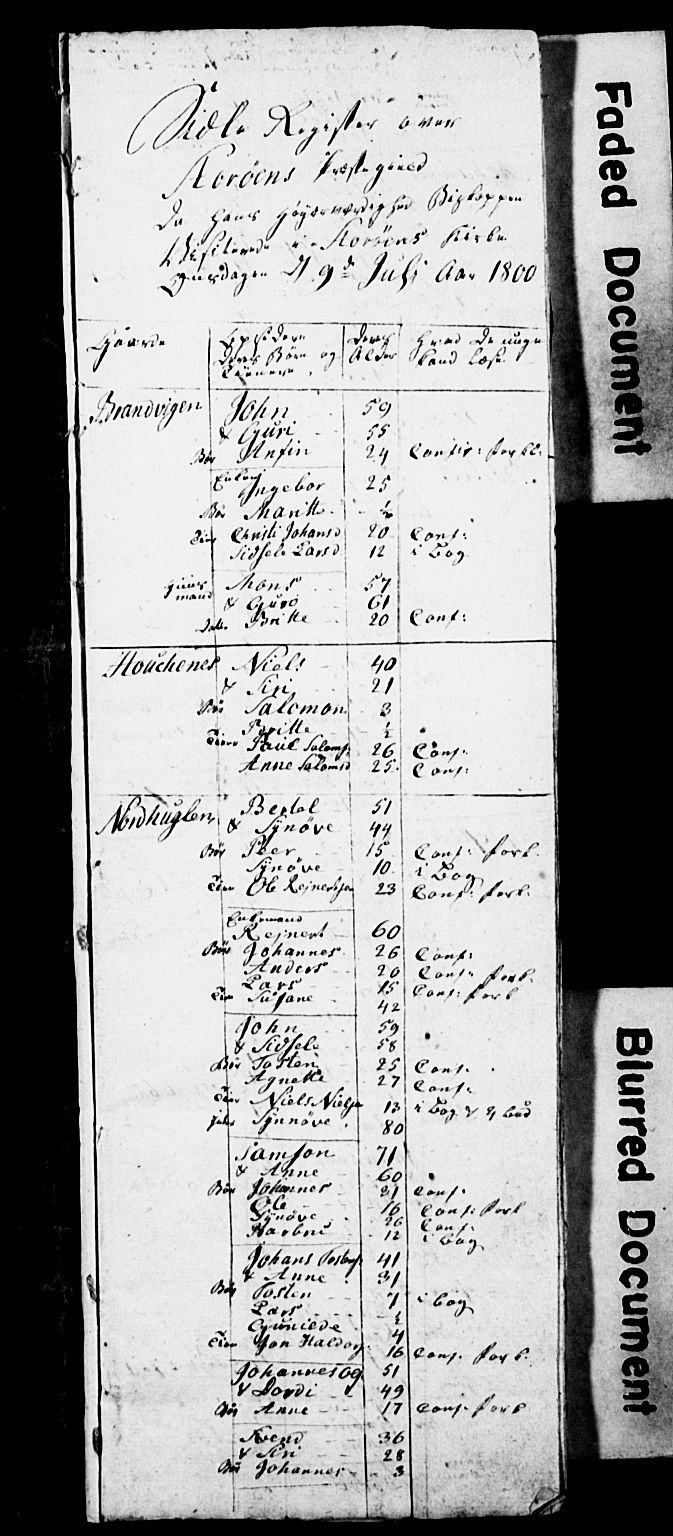 Siæle Register over
Storøens Præstegield
da hans Høyærværdighed Biskoppen
Visiterede i Storøens Kirke
Onsdagen d 9de Julj Aar 1800
Gaarde Opsiddere Deres Børn og Tienere Deres Alder Hvad De unge kand læse
Brandvigen John 59
& Guri 55
Bør Anfin 24 Confir: forkl:
Enken Ingebor 25
Bør Maritte ½
Tien Christi Johansd 20 Conf:
Sidsele Larsd 12 i Bog
Huusmand Mons 57
& Guro 61
Datter Britte 20 Conf:
Houchenes Niels 40
& Siri 21
Bør Salomon 3
Britte ½
Tien Paul Saloms 26 Conf:
Anne Salomsd 25 Conf:
Nordhuglen Bertel 51
& Synøve 44
Bør Peer 15 Conf: fork.
Synøve 10 i Bog
Tien Ole Rejnertsen 23 Conf: fork.
Enkemand
Rejnert 60
Bør Johannes 26 Conf:
Anders 20 Conf: fork.
Lars 15 Conf: fork
Tien Susane 42
John 59
& Sidsele 58
Bør Tosten 25 Conf:
Agnette 27 Conf:
Tien Niels Nielsen 13 i Bog &
Synnøve 80
Samson 71
& Anne 60
Bør Johannes 31 Conf:
Ole 16 Conf: fork
Synøve 26 Conf:
12 i Bog
Johans Tostens 41
& Anne 31
Bør Tosten 7 i bog
Lars ½
Gunilde 4
Tien Jon Haldors 16 Conf: fork.
Johannes og 51
& Dordi 49
Bør Anne 17 Conf: fork
Svend 36
& Siri 28
Bør Johannes 3
Faded Document
Blurred Document